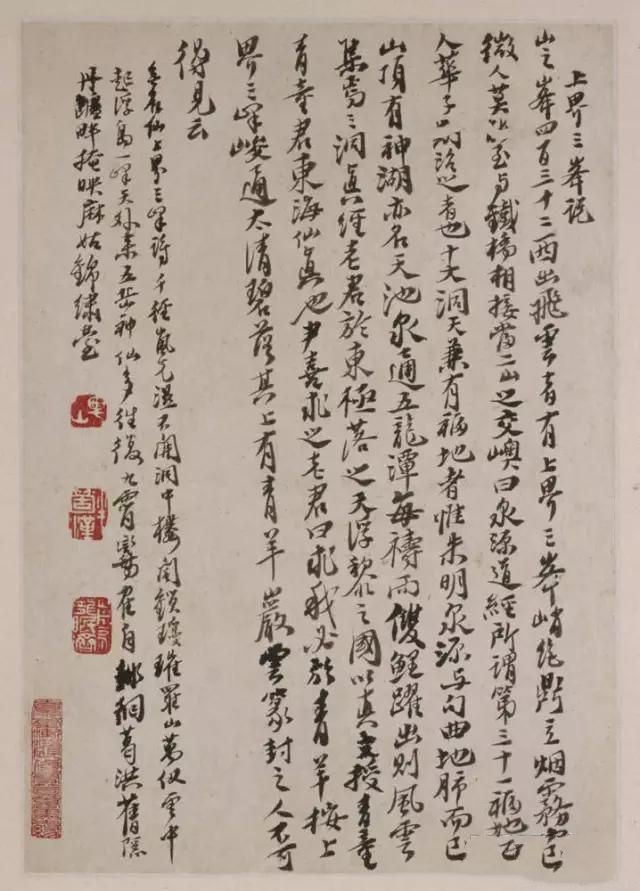 上界三峯説
山之峯四百三十二西出飛雲者有上界三峯峭絶鼎立烟霧
微人莫能至与鐵橋相接當二山之交嶼曰泉源道經所謂第三十一福地
人華子期治之者也十大洞天兼有福地者惟朱明泉源与句曲地肺而已
山頂有神湖亦名天池泉通五龍潭每禱雨雙鯉躍出則風雲
集焉三洞真經老君於東極落之天浮黎之國以真文授青童
青童君東海仙真也尹喜求之老君曰求我必於青羊按上
界三峰峻通太清碧落其上有青羊巖雲篆封之人不可
得見云
仙上界三峰詩千種嵐光湿不開洞中樓閣鎖瓊瑰羅山萬仭雲中
起浮島一峰天外来五嶽神仙多往復九霄鸞自葛洪舊隐
丹爐畔掩映麻姑錦繡堂